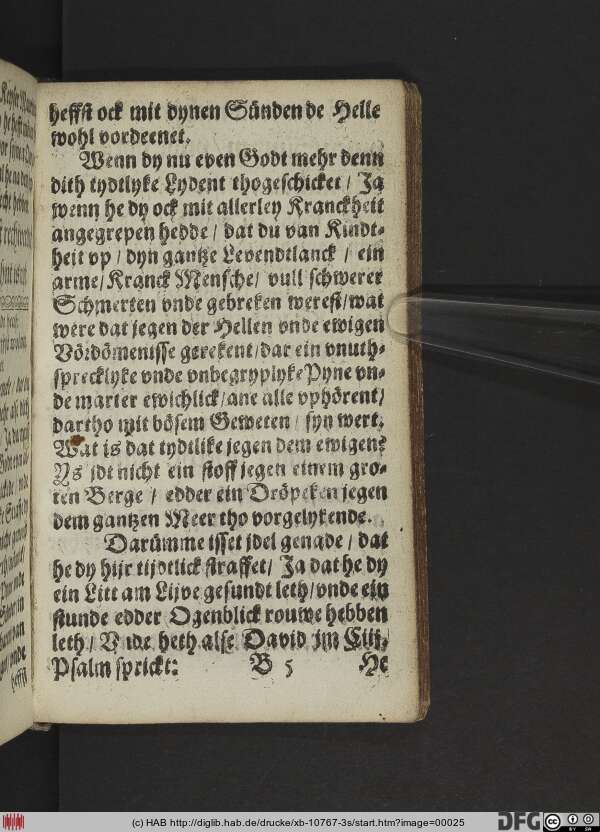 heffst ock mit dynen Sünden de Helle
wohl vordeenet.
Wenn dy nu even Godt mehr denn
dith tydtlyke Lydent thogeschicket / Ja
wenn he dy ock mit allerley Kranckheit
angegrepen hedde / dat du van Kindt-
heit vp / dyn gantze Levendtlanck / ein
arme / Kranck Mensche / vull schwerer
Schmerten vnde gebreken werest / wat
were dat jegen der Hellen vnde ewigen
Vördömenisse gerekent / dar ein vnuth-
sprecklyke vnde vnbegryplyke Pyne vn-
de marter ewichlick / ane alle vphörent /
dartho mit bösem Geweten / syn wert.
Wat is dat tydtlike jegen dem ewigen?
Ys jdt nicht ein stoff jegen einem gro-
ten Berge / edder ein Dröpeken jegen
dem gantzen Meer tho vorgelykende.
Darümme isset jdel genade / dat
he dy hijr tijdtlick straffet / Ja dat he dy
ein Litt am Lijve gesundt leth / vnde ein
stunde edder Ogenblick rouwe hebben
leth / Vnde heth alse David jm Ciij.
Psalm sprickt:
B 5
He
(c) HAB http://diglib.hab.de/drucke/xb-10767-3s/start.htm?image=00025
DFG
cc BY SA